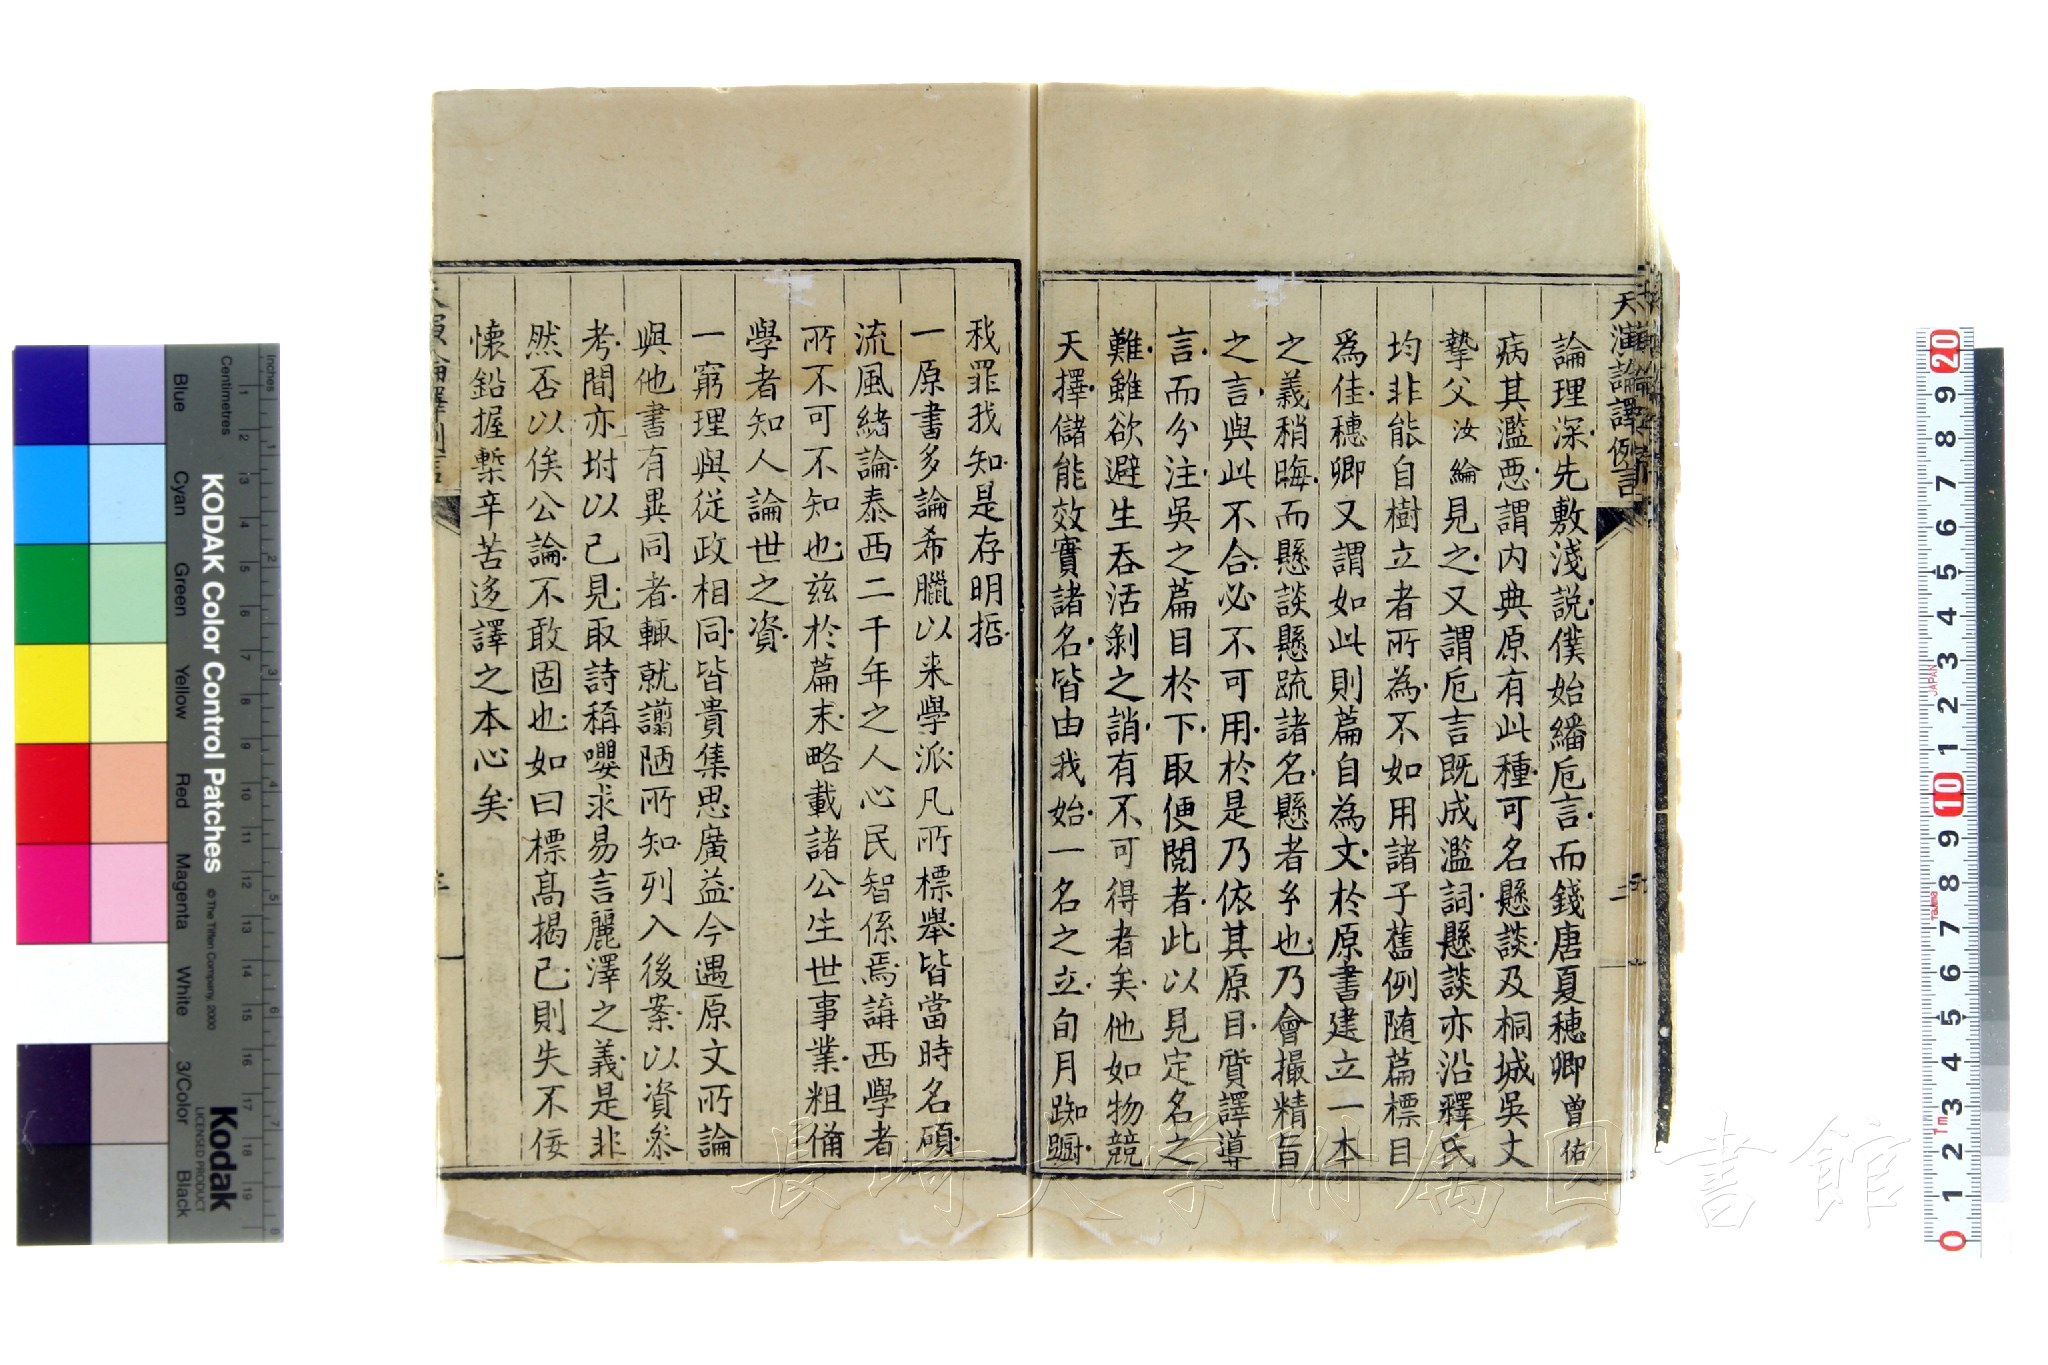 天演論譯例言
論理深先敷淺說僕始繙卮言而錢唐夏穗卿曾佑
病其濫惡謂內典原有此種可名懸談及桐城吳丈
摯父汝綸見之又謂卮言旣成濫詞懸談亦沿釋氏
均非能自樹立者所為不如用諸子舊例随篇標目
爲佳穗卿又謂如此則篇自為文於原書建立一本
之義稍晦而懸談懸疏諸名懸者系也乃會撮精旨
之言與此不合必不可用於是乃依其原目質譯導
言而分注吳之篇目於下取便閱者此以見定名之
難雖欲避生吞活剝之誚有不可得者矣他如物競
天擇儲能效實諸名皆由我始一名之立旬月踟躕
我罪我知是存明哲
一原書多論希臘以来學派凡所標舉皆當時名碩
流風緒論泰西二千年之人心民智係焉講西學者
所不可不知也兹於篇末略載諸公生世事業粗備
學者知人論世之資
一窮理與從政相同皆貴集思廣益今遇原文所論
與他書有異同者輒就譾陋所知列入後案以資叅
考間亦坿以己見取詩稱嚶求易言麗澤之義是非
然否以俟公論不敢固也如曰標高揭己則失不佞
懐鉛握槧辛苦迻譯之本心矣
KODAK Color Control Patches
© The Tiffen Company, 2000
Kodak
LICENSED PRODUCT
Inches
Centimetres
Blue
Cyan
Green
Yellow
Red
Magenta
White
3/Color
Black
長崎大学附属図書館
JAPAN